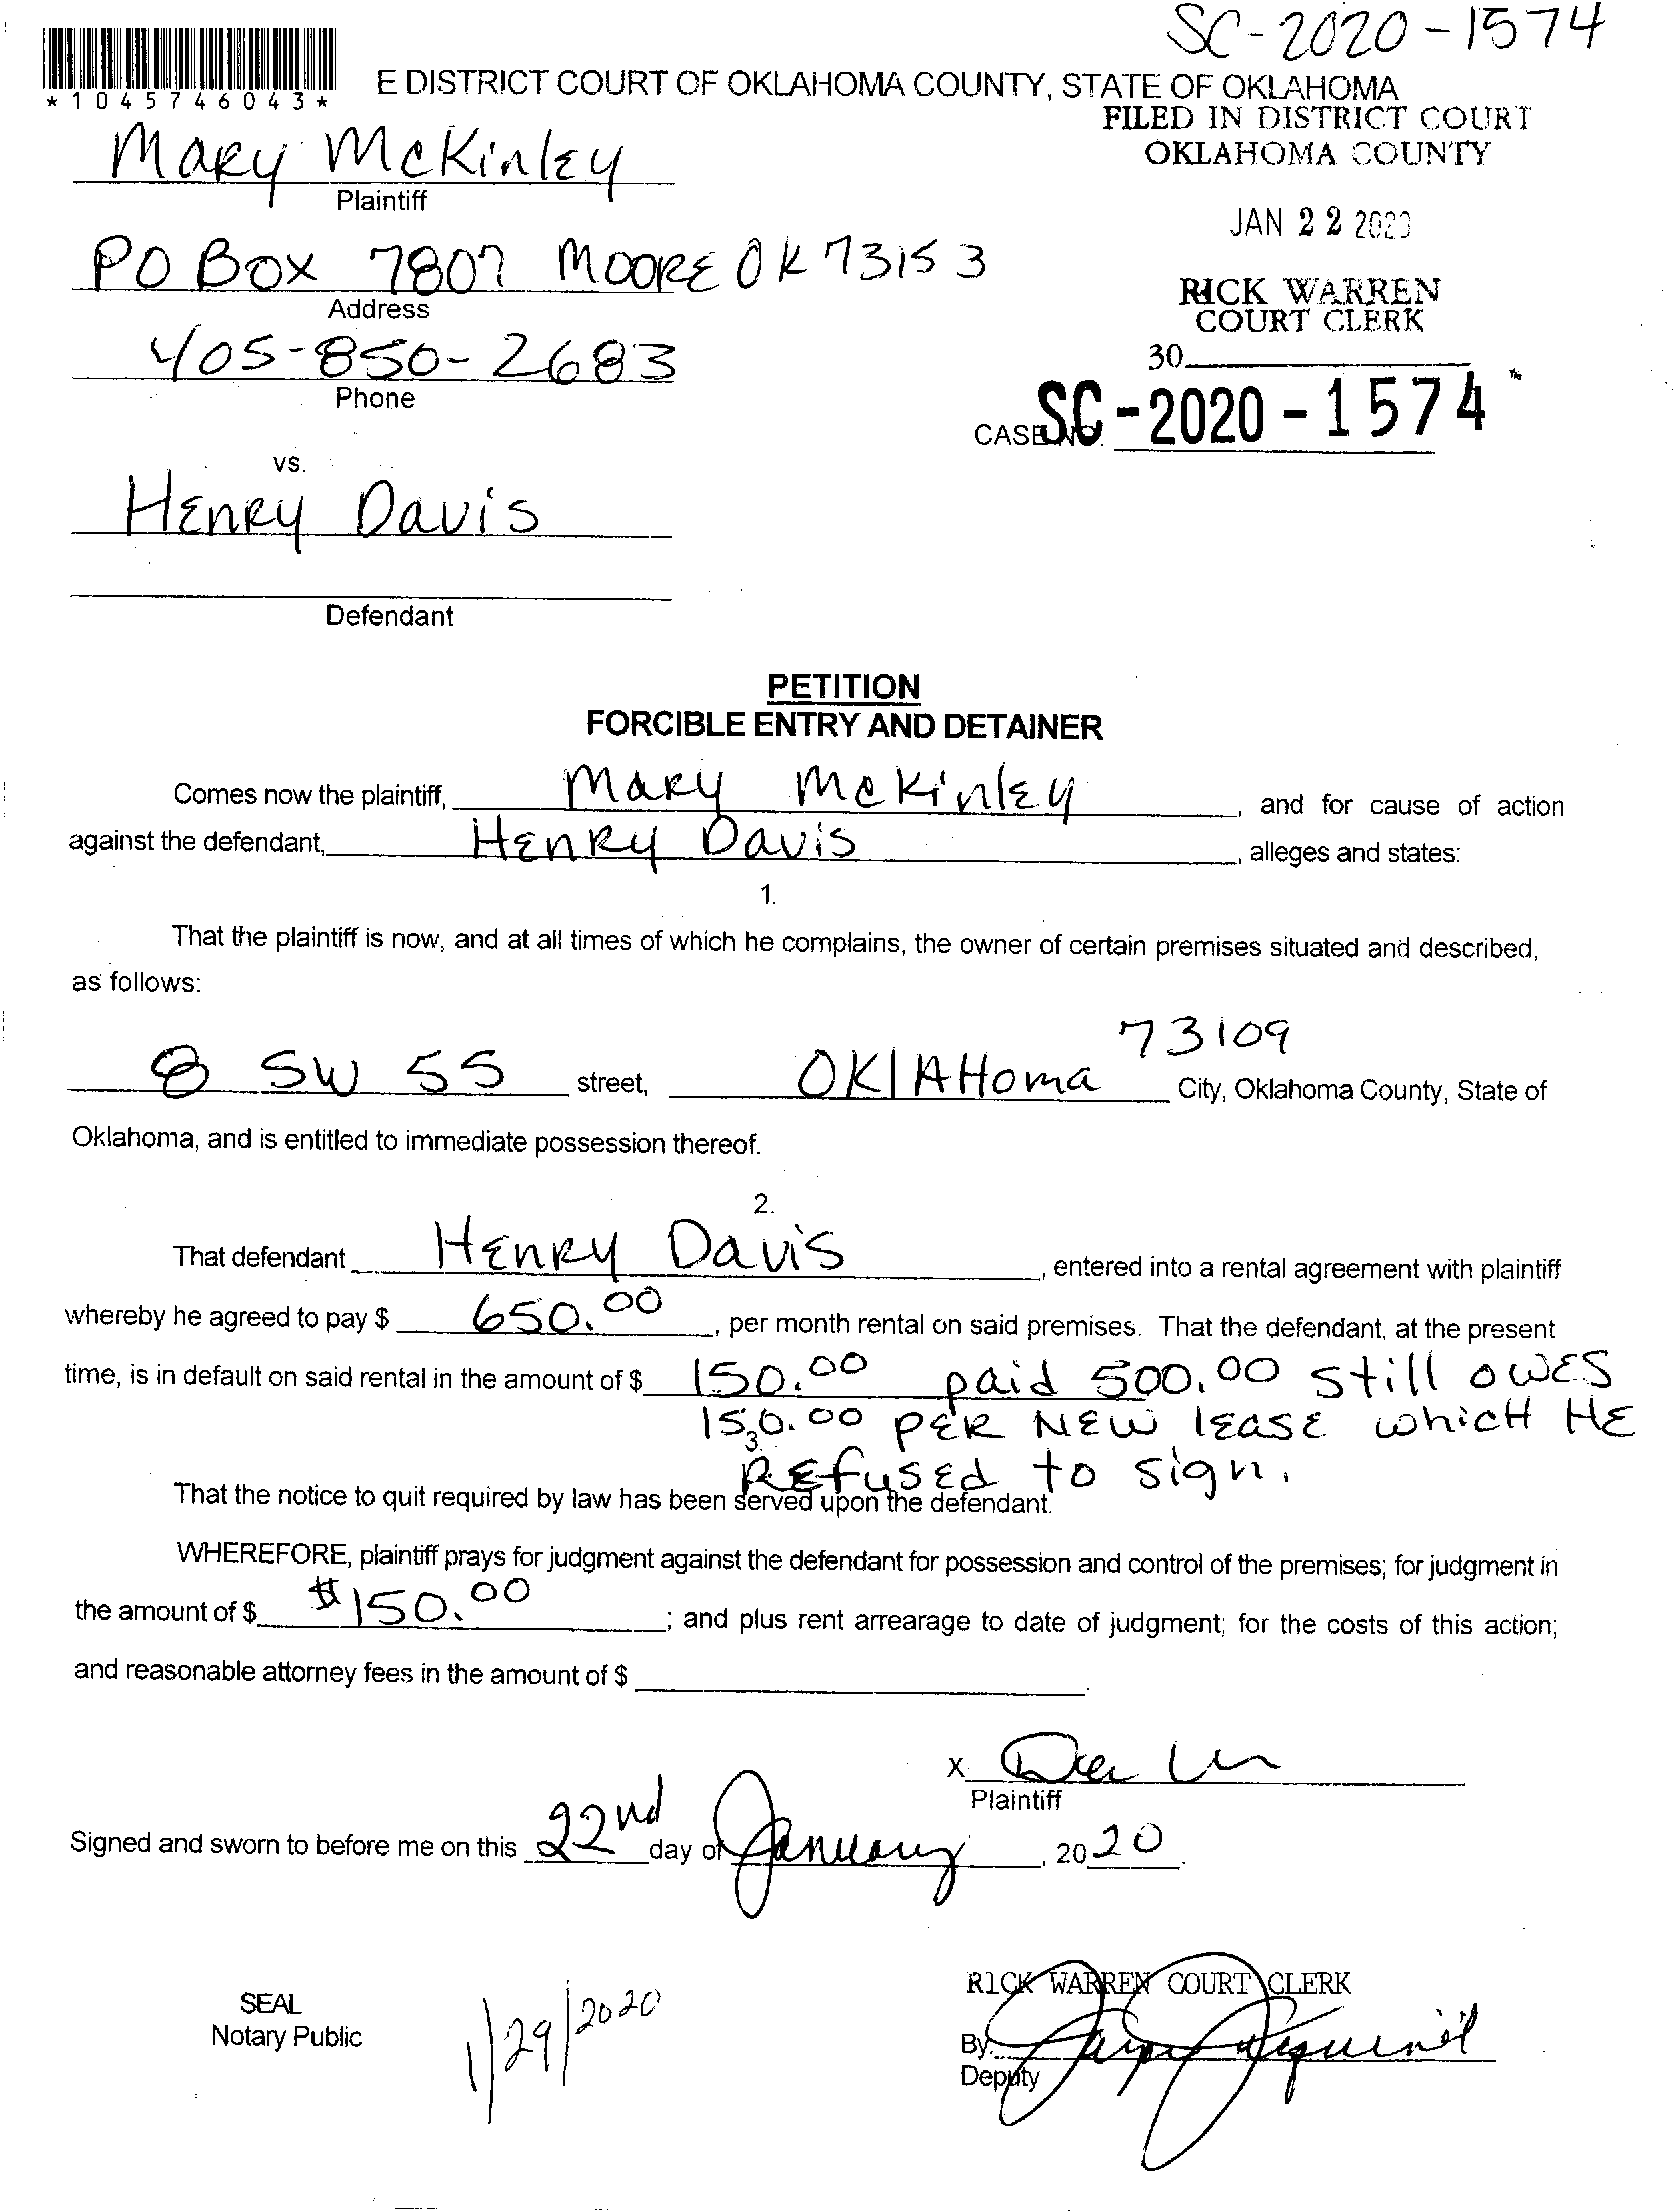 SC-2020-1574
*1045746043*
E DISTRICT COURT OF OKLAHOMA COUNTY, STATE OF OKLAHOMA
FILED IN DISTRICT COURT
OKLAHOMA COUNTY
Mary McKinley
Plaintiff
JAN 22 2020
PO Box 7807 Moore OK 73153
Address
RICK WARREN
COURT CLERK
405-850-2683
Phone
30
CASE NO. SC-2020-1574
vs.
Henry Davis
Defendant
PETITION
FORCIBLE ENTRY AND DETAINER
Comes now the plaintiff, Mary McKinley, and for cause of action
against the defendant, Henry Davis, alleges and states:
1.
That the plaintiff is now, and at all times of which he complains, the owner of certain premises situated and described,
as follows:
73109
8 SW 55 street, OKlAHoma City, Oklahoma County, State of
Oklahoma, and is entitled to immediate possession thereof.
2.
That defendant Henry Davis, entered into a rental agreement with plaintiff
whereby he agreed to pay $ 650.00, per month rental on said premises. That the defendant, at the present
time, is in default on said rental in the amount of $ 150.00 paid 500.00 still owes
150.00 per new lease which HE
3.
Refused to sign.
That the notice to quit required by law has been served upon the defendant.
WHEREFORE, plaintiff prays for judgment against the defendant for possession and control of the premises; for judgment in
the amount of $ $150.00; and plus rent arrearage to date of judgment; for the costs of this action;
and reasonable attorney fees in the amount of $
X
Plaintiff
Signed and sworn to before me on this 22nd day of January, 2020.
RICK WARREN COURT CLERK
SEAL
Notary Public
1/29/2020
By:
Deputy